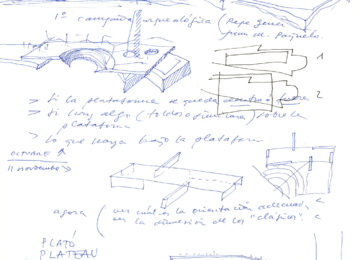 1ª campaña arqueológica (Pepe Gener
1
2
> Si la plataforma se queda dentro o fuera
> Si hay algo ( ) sobre la
plataforma
> Lo que haya bajo la plataforma
OCTUBRE
11 NOVIEMBRE
agora ( ver cuál es la orientación adecuada,
ver la dimensión de los "clásicos".
PLATÓ
PLATEAU